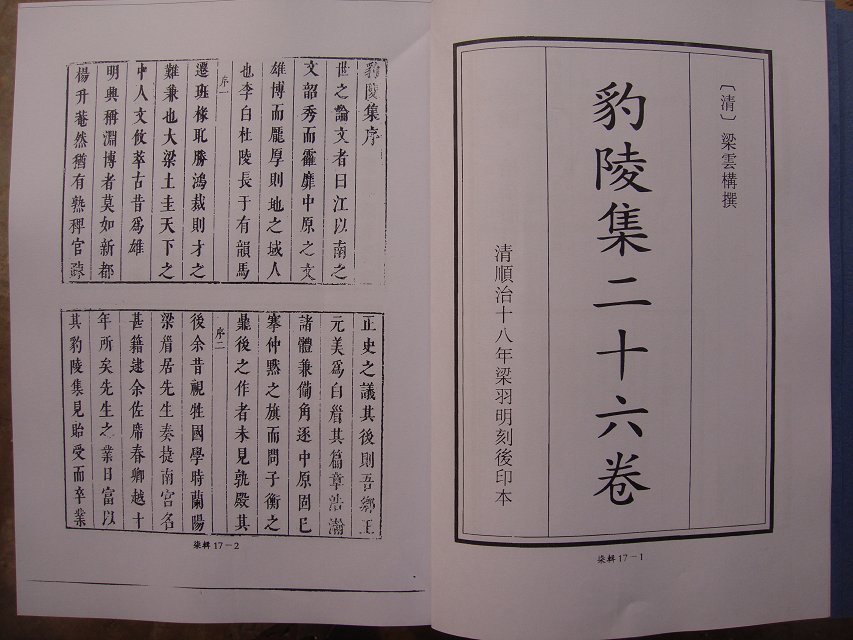 〔清〕梁雲構撰
豹陵集二十六卷
清順治十八年梁羽明刻後印本
柒輯17－1
豹陵集序
世之論文者曰江以南之
文韶秀而霏靡中原之文
雄博而龎厚則地之域人
也李白杜陵長于有韻馬
序一
遷班椽耻勝鴻裁則才之
難兼也大梁土圭天下之
中人文攸萃古昔爲雄
明興稱淵博者莫如新都
楊升菴然猶有熱稗官疎
正史之議其後則吾鄉王
元美爲白眉其篇章浩瀚
諸體兼僃角逐中原固已
搴仲黙之旗而問子衡之
鼎後之作者未見孰嚴其
序二
後余昔視牲國學時蘭陽
梁眉居先生奏捷南宮名
甚籍逮余佐席春卿越十
年所矣先生之業日富以
其豹陵集見貽受而卒業
柒輯17－2